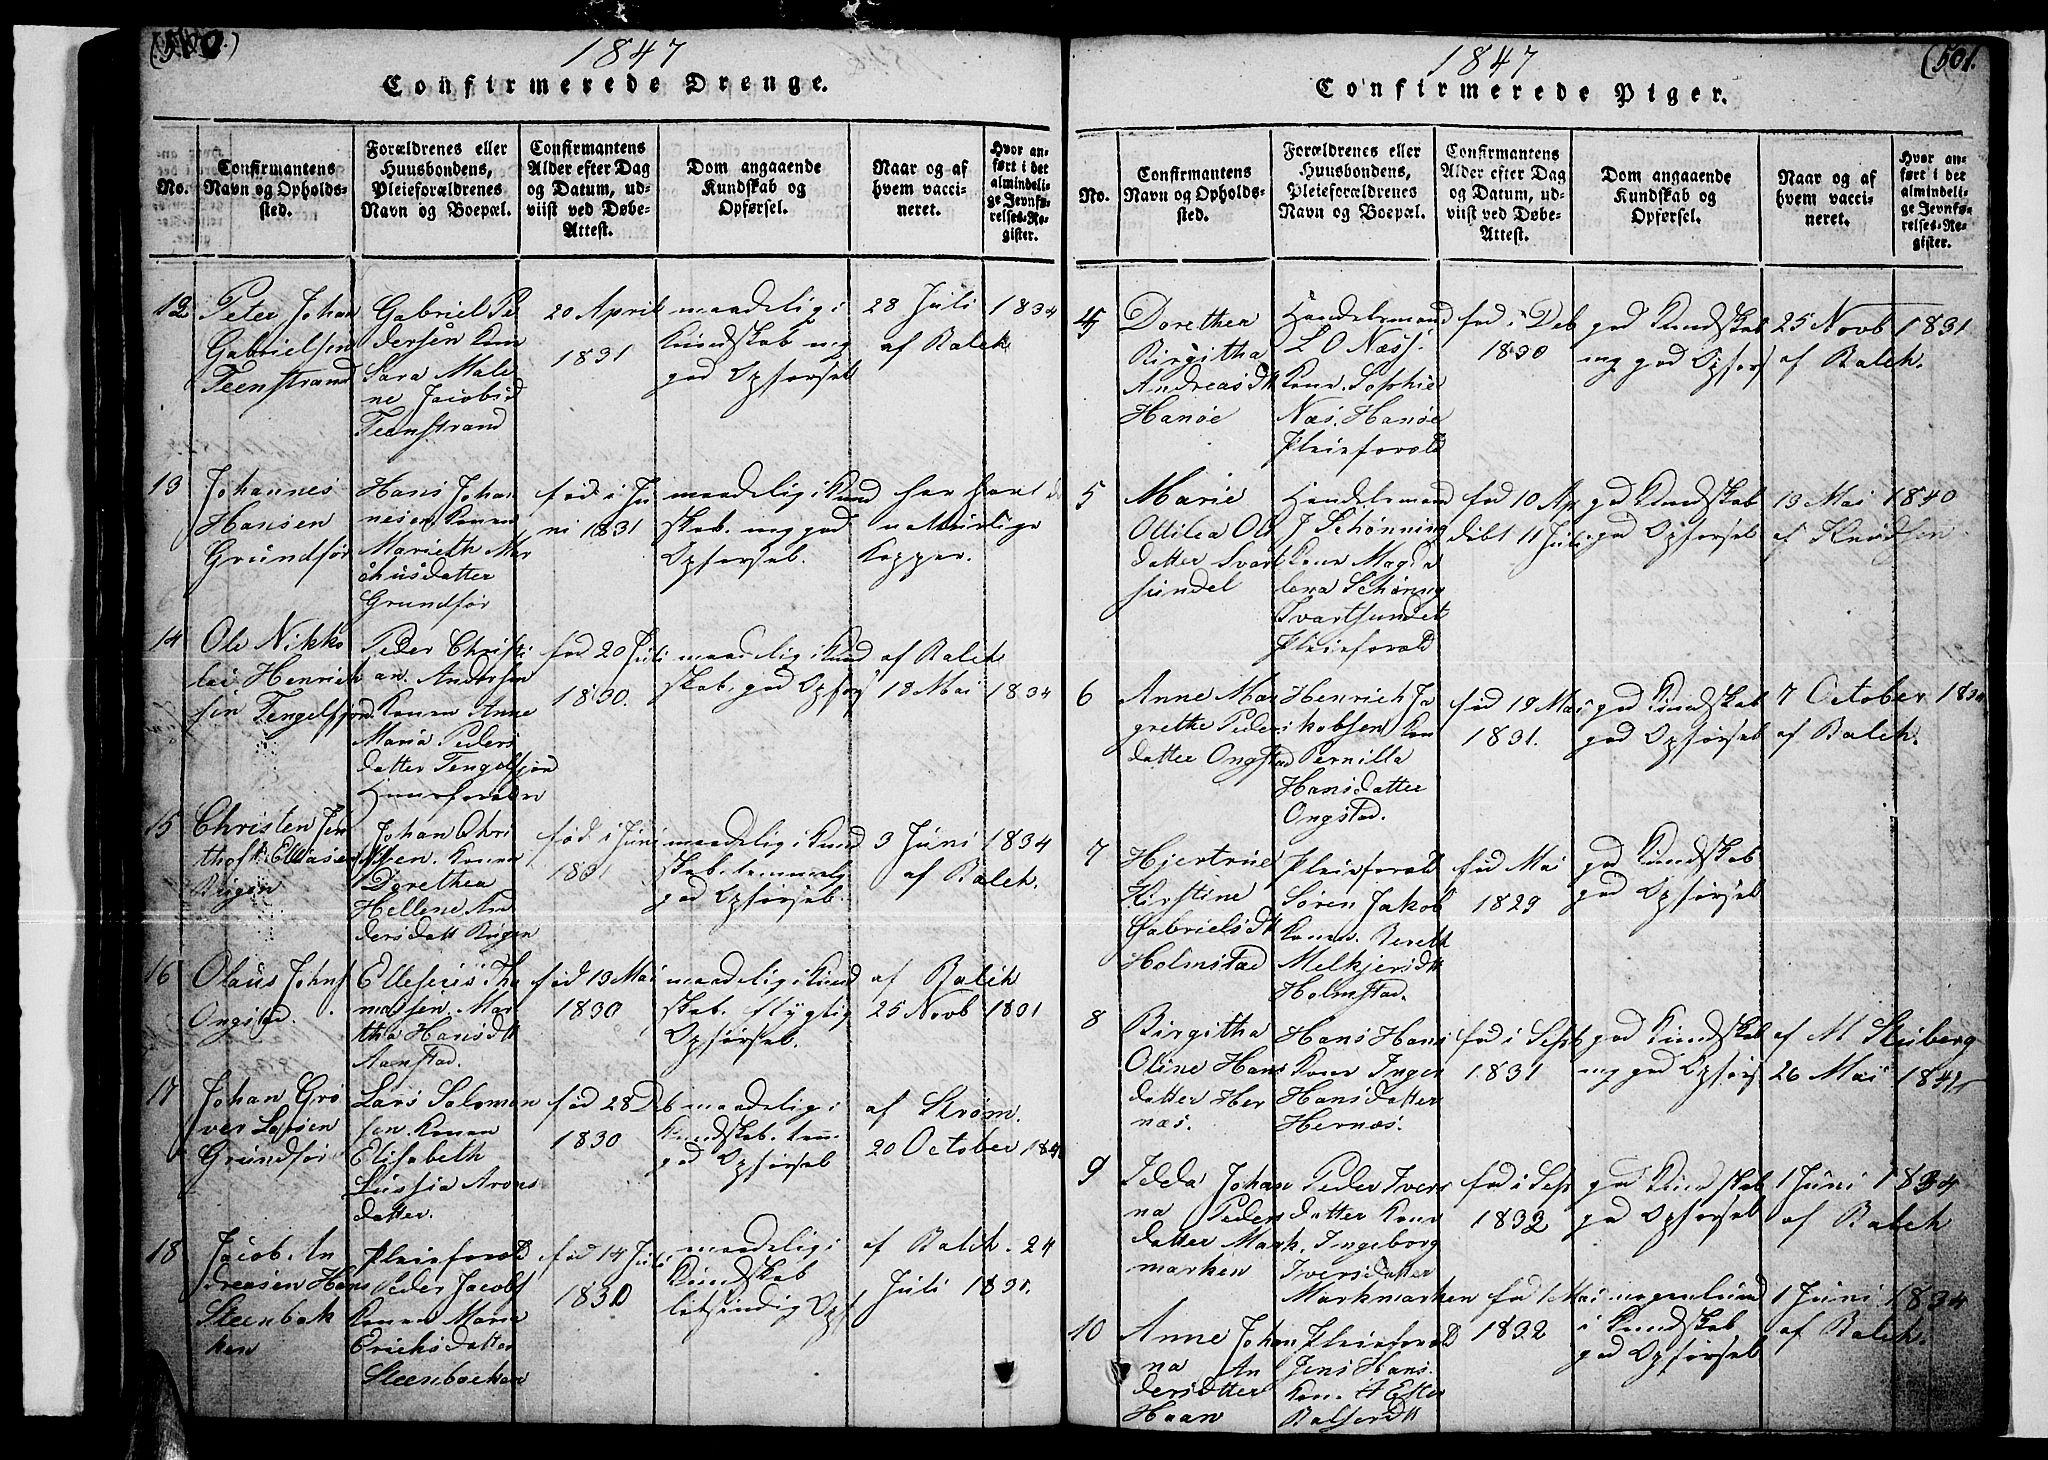 (500)
1847
Confirmerede Drenge.
No.
Confirmantens
Navn og Opholds-
sted.
Forældrenes eller
Huusbondens,
Pleieforældrenes
Navn og Boepæl.
Confirmantens
Alder efter Dag
og Datum, ud-
viist ved Døbe-
Attest.
Dom angaaende
Kundskab og
Opførsel.
Naar og af
hvem vacci-
neret.
Hvor an-
ført i det
almindeli-
ge Jevnfø-
relses-Re-
gister.
12
Peter Johan
Gabrielsen
Teenstrand
Gabriel Pe
dersen Kone
Sara Male
ne Jacobsd
Teenstrand
20 April
1831
maadelig i
Kundskab meg
god Opførsel
28 Juli 1834
af Balch
13
Johannes
Hansen
Grundfør
Hans Johan
nesen Konen
Mariethe Mar
Grundfør
fød i Ju
ni 1831
maadelig i Kund
skab. meg god
Opførsel.
har havt de
naturlige
Kopper.
14
Ole Nikko
lai Henrich
sen Tengelfjord
Peder Christi
an Andersen
Konen Anne
Maria Peders
datter Tengelfjord
Huusforældre
fød 20 Juli
1830.
maadelig i Kund
skab, god Opførs
af Balch
18 Mai 1834
15
Christen Jen
thoft Elliasen
Bøigen
Johan Chri
Konen
Dorethea
Hellene An
dersdatt Bøigen
fød i Juni
1831
maadelig i Kund
skab. temmelig
god Opførsel.
3 Juni 1834
af Balch.
16
Olaus Johns
Ongstad.
Elleseus Tho
massen. Mar
tha Hansdtt
Aanstad.
fød 13 Mai
1830
maadelig i Kund
skab. flygtig
Opførsel.
af Balch
25 Novb 1831
17
Johan Grø
ver Larsen
Grundfør
Lars Salomon
sen. Konen
Elisabeth
Lussia Arons
datter.
fød 28 Deb
1830
maadelig i
Kundskab. tem.
god Opførsel
af Strøm.
20 October 184
18
Jacob An
dreasen Hans
Steenbak
ken
Pleieforæld
Peder Jacobs
Konen Maria
Erichsdatter
Steenbacken
fød 14 Juli
1830
maadelig i
Kundskab
letsindig Opf
af Balch. 24
Juli 1835.
(501.
1847
Confirmerede Piger.
No.
Confirmantens
Navn og Opholds-
sted.
Forældrenes eller
Huusbondens,
Pleieforældrenes
Navn og Boepæl.
Confirmantens
Alder efter Dag
og Datum, ud-
viist ved Døbe-
Attest.
Dom angaaende
Kundskab og
Opførsel.
Naar og af
hvem vacci-
neret.
Hvor an-
ført i det
almindeli-
ge Jevnfø-
relses-Re-
gister.
4
Dorethea
Birgitha
Andreasdtt
Hanøe
Handelsmand
L O Næss.
Kone. Sophie
Næs. Hanøe
Pleieforæld
fød i Deb
1830
god Kundskab
meg god Opførs
25 Novb 1831
af Balch.
5
Marie
Odilea Ol
datter Svart
sundet
Handelsmand
J Schønning
Kone Magda
lena Schøning
Svartsundet
Pleieforæld
fød 10 Ap
døbt 11 Juli
god Kundskab
god Opførsel
13 Mai 1840
af Knudsen
6
Anne Mar
grethe Peders
datter Ongstad
Henrich Ja
kobsen Kon
Pernilla
Hansdatter
Ongstad.
fød 19 Mai
1831.
god Kundskab
god Opførsel
7 October 1834
af Balch.
7
Hjertrue
Kirstine
Gabrielsdtt
Holmstad
Pleieforæld
Søren Jakob
Konen. Bereth
Melkjersdtt
Holmstad.
fød Mai
1829
god Kundskab
god Opførsel
8
Birgitha
Oline Hans
datter Her
næs.
Hans Hans
Kone Inger
Hansdatter
Hernæs.
fød i Septb
1831
god Kundskab
meg god Opførs
af M Stuberg
26 Mai 184
9
Idda Johan
na Peders
datter Mark
marken
Peder Ivers
datter Kone
Ingeborg
Iversdatter
Markmarken
fød i Sept
1832
god Kundskab
god Opførsel
1 Juni 1834
af Balch
10
Anne Johan
na An
dersdatter
Haan
Pleieforæld
Jens Hans.
Kon. A Ester
Balsersdtt
fød 1 Mai
1832
i Kundskab
god Opførsel
1 Juni 1834
af Balch.